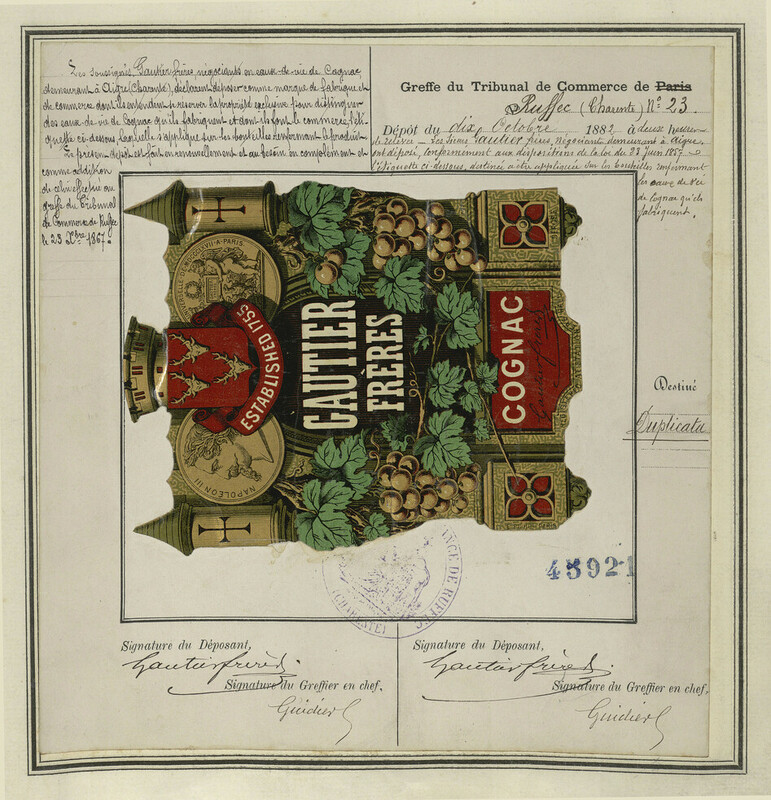 Les soussignés Gautier frères, négociants en eaux-de-vie de Cognac
demeurant à Aigre (Charente), déclarent déposer comme marque de fabrique et
de commerce dont ils entendent se réserver la propriété exclusive pour distinguer
des eaux-de-vie de Cognac qu'ils fabriquent et dont ils font le commerce, l'éti-
quette ci-dessous laquelle s'applique sur les bouteilles renfermant le produit.
Le présent dépôt est fait en renouvellement et au besoin en complément et
comme addition
de celui effectué au
greffe du Tribunal
de Commerce de Ruffec
le 23 Xbre 1867.
Greffe du Tribunal de Commerce de Paris
Ruffec (Charente) N° 23
Dépôt du dix Octobre 1882 à deux heures
de relevée. Les sieurs Gautier frères, négociants demeurant à Aigre,
ont déposé, conformément aux dispositions de la loi du 23 Juin 1857
l'étiquette ci-dessous, destinée à être appliquée sur les bouteilles renfermant
les eaux-de-vie
de Cognac qu'ils
fabriquent.
A PARIS
ESTABLISHED 1755
NAPOLEON III
GAUTIER
FRÈRES
COGNAC
Gautier frères
Destiné
Duplicata
DE RUFFEC
(CHARENTE)
45921
Signature du Déposant,
Gautier frères
Signature du Greffier en chef,
Guidier
Signature du Déposant,
Gautier frères
Signature du Greffier en chef,
Guidier